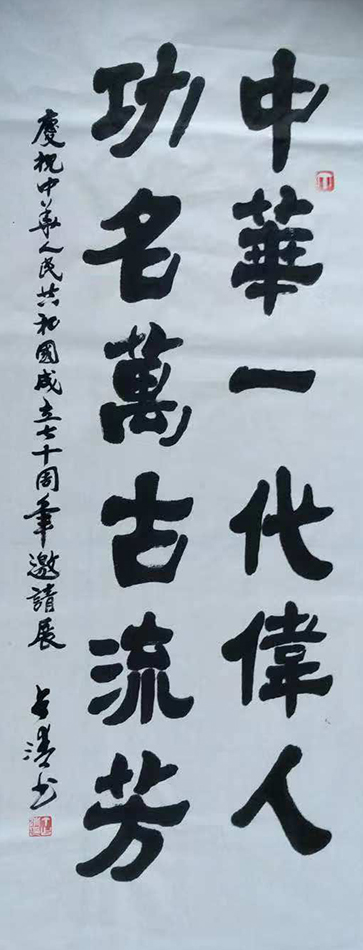 中華一代偉人
功名萬古流芳
慶祝中華人民共和國成立七十周年邀請展
占清书